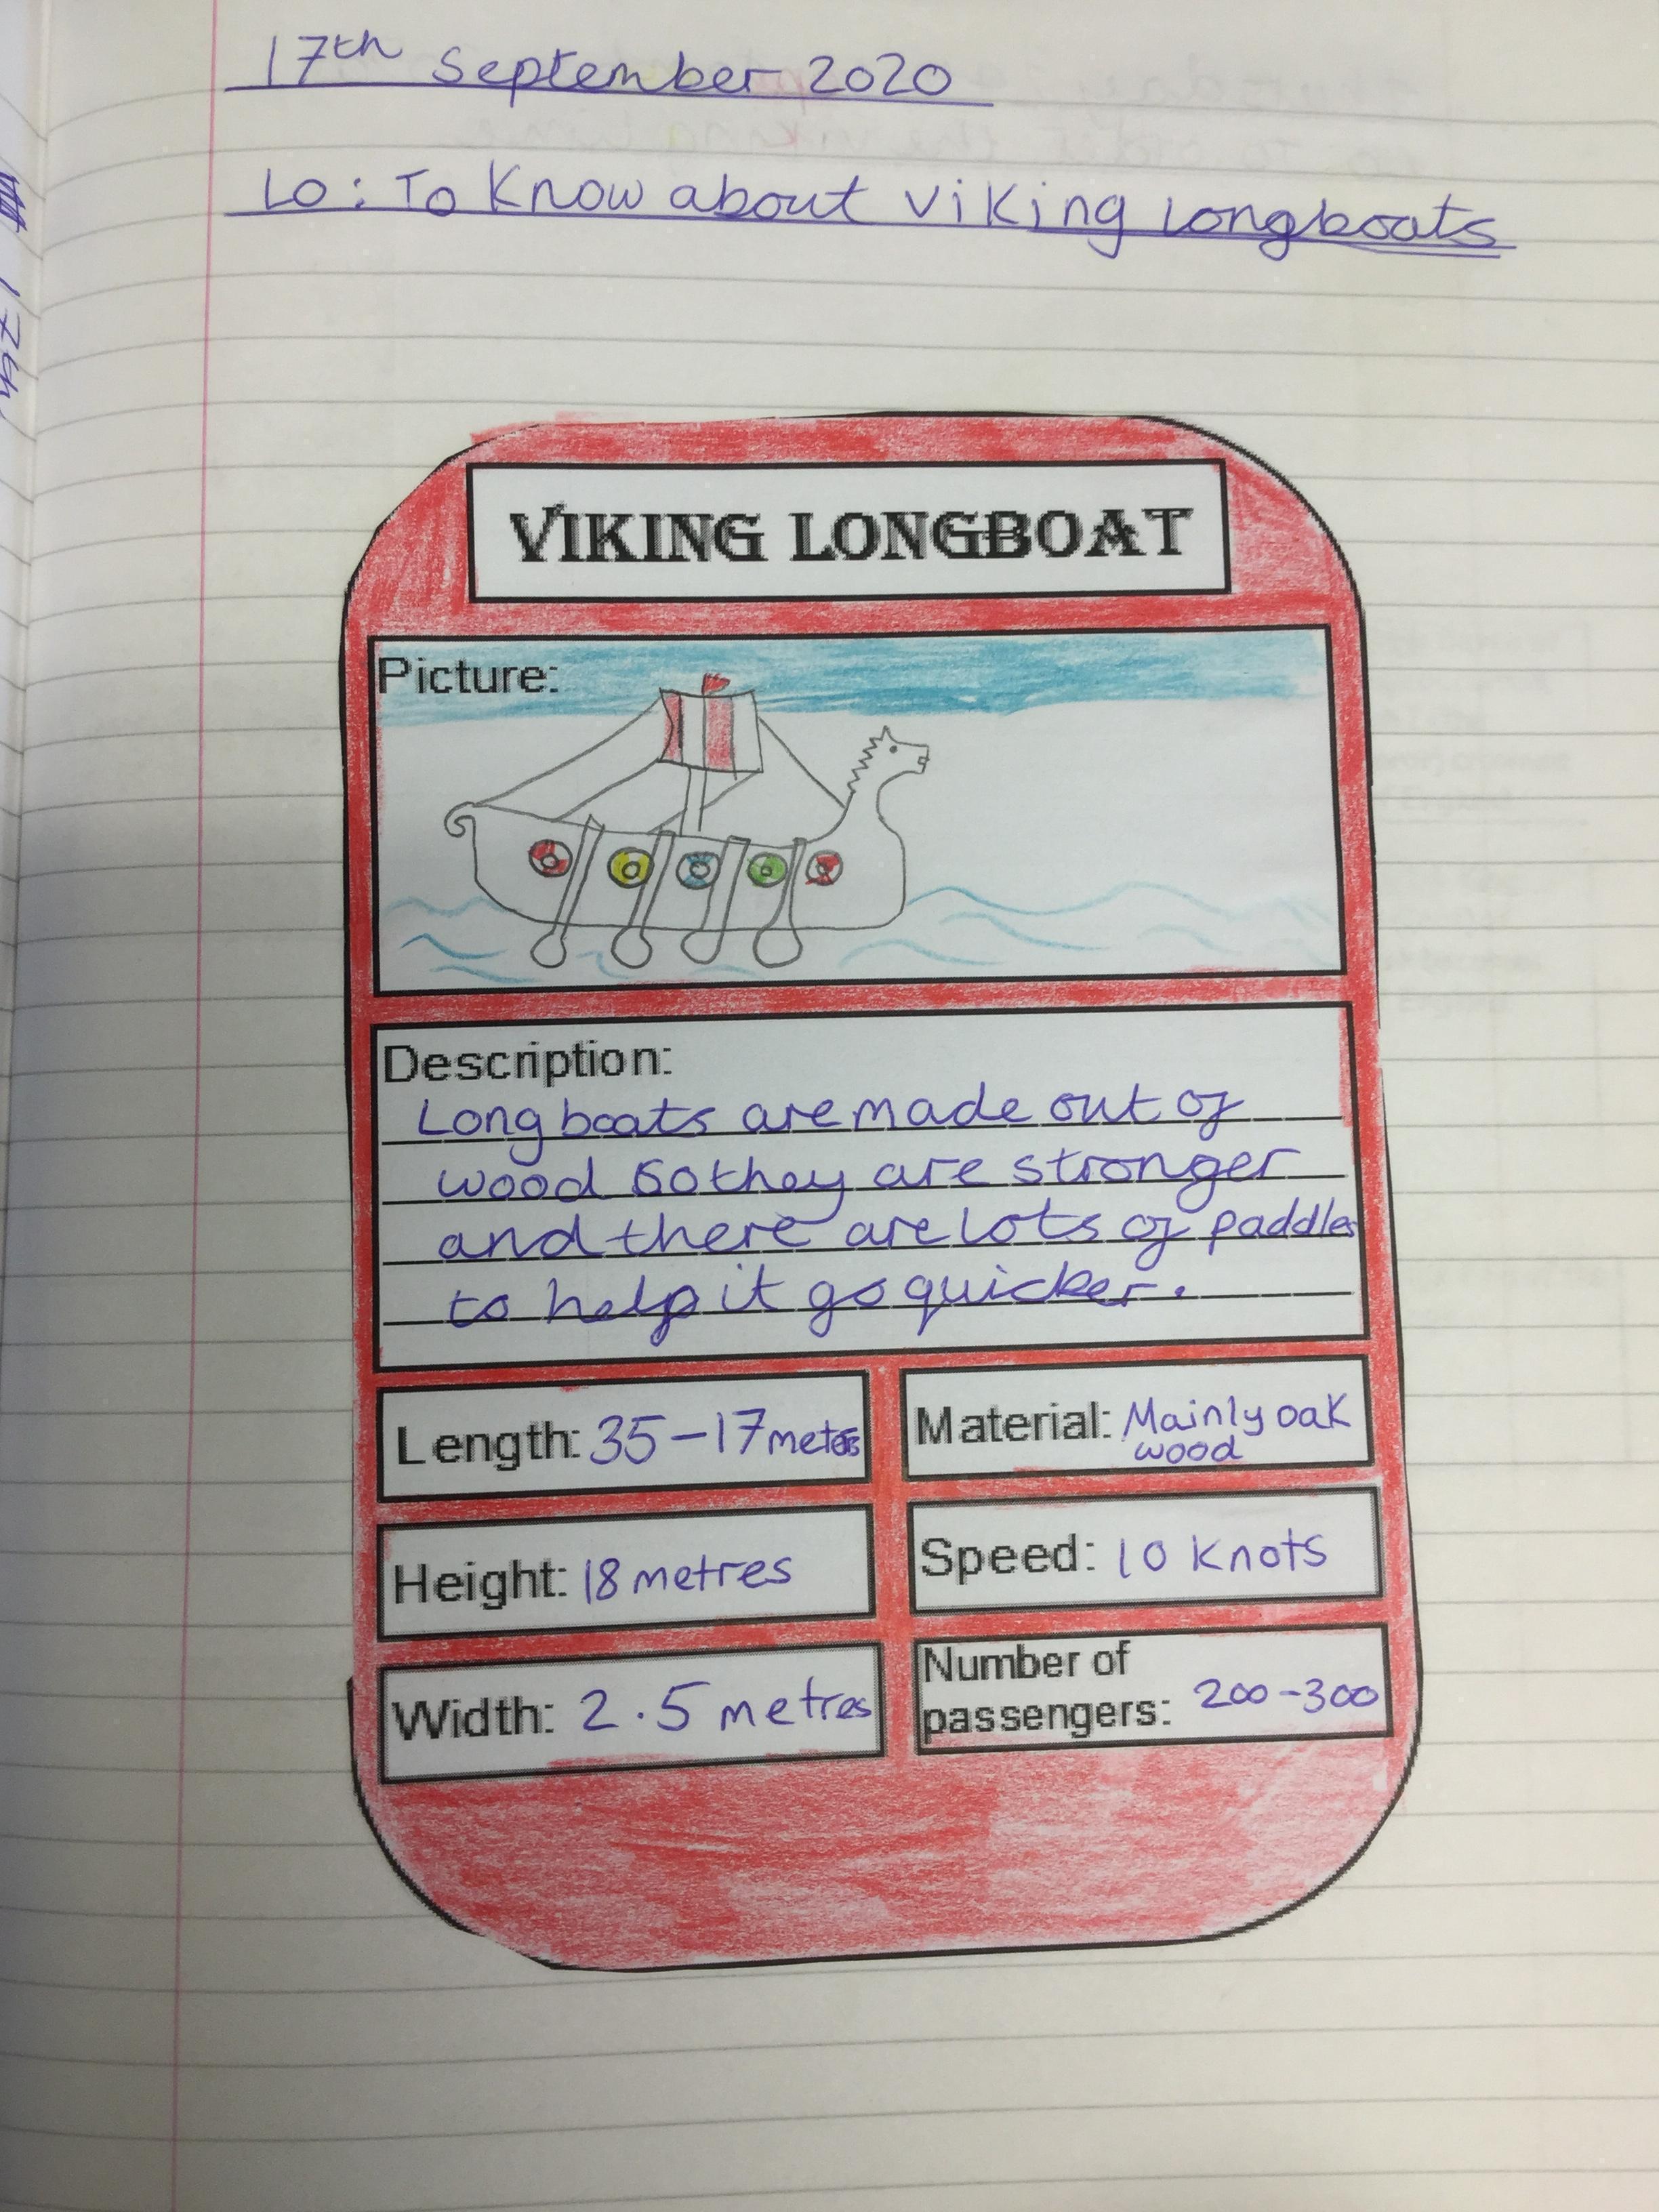 17th September 2020
LO: To Know about Viking Longboats
VIKING LONGBOAT
Picture:
Description:
Longboats are made out of
wood so they are stronger
and there are lots of paddles
to help it go quicker.
Length: 35-17 metres
Material: Mainly oak
wood
Height: 18 metres
Speed: 10 Knots
Width: 2.5 metres
Number of
passengers: 200-300
17th